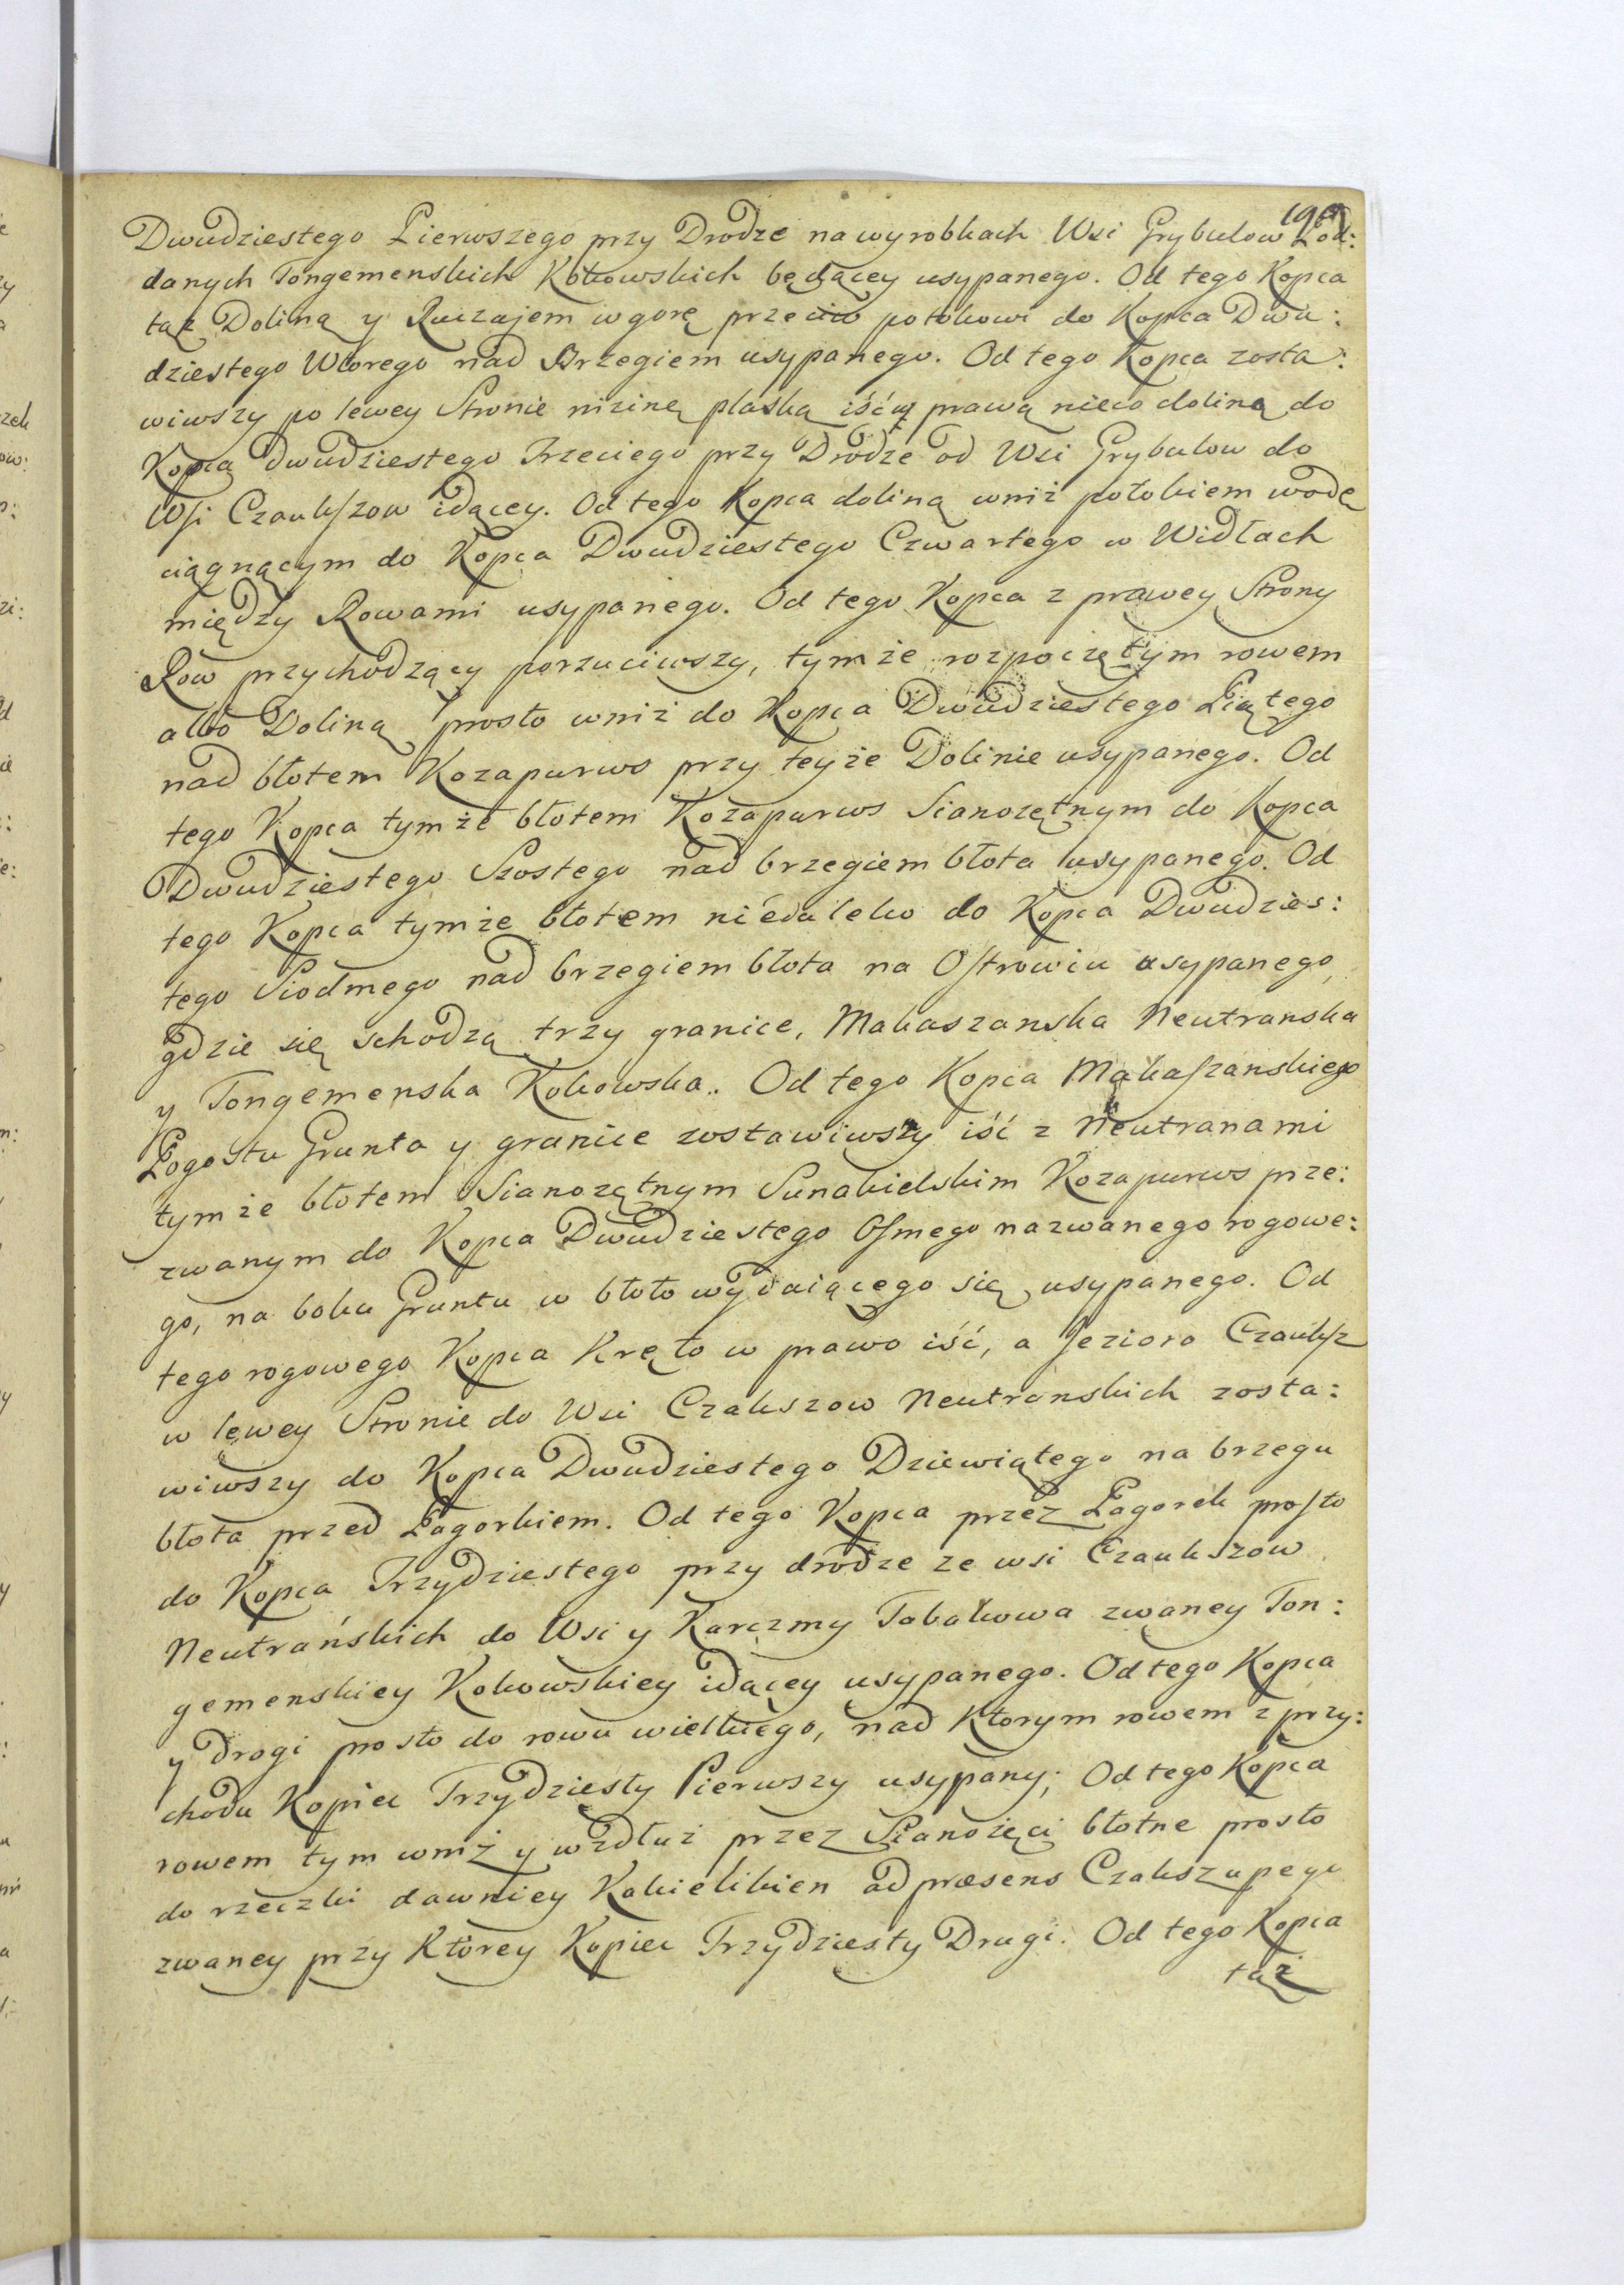 Dwudziestego Pierwszego przy Drodze na wyrobkach Wsi Grybulow Pod:
danych Tongemenskich Kokowskich będącey usypanego. Od tego Kopca
taż Doliną y Ruczajem wgorę przeciw potokowi do Kopca Dwu:
dziestego Wtorego nad Brzegiem usypanego. Od tego Kopca zosta:
wiwszy po lewey Stronie nizinę płaską iść w prawą nieco doliną do
Kopca dwudziestego Trzeciego przy Drodze od Wsi Grybulow do
Wſi Czaukſzow idącey. Od tego Kopca doliną wniż potokiem wodę
ciągnącym do Kopca Dwudziestego Czwartego w Widłach
między Rowami usypanego. Od tego Kopca z prawey Strony
Row przychodzący porzuciwszy, tymże rozpoczętym rowem
albo Doliną prosto wniż do Kopca Dwudziestego Piątego
nad błotem Kozapurws przy teyże Dolinie usypanego. Od
tego Kopca tymże błotem Kozapurws Sianozętnym do Kopca
Dwudziestego Szostego nad brzegiem błota usypanego. Od
tego Kopca tymże błotem niedaleko do Kopca Dwudzies:
tego Siodmego nad brzegiem błota na Oſtrowiu usypanego,
gdzie się schodzą trzy granice, Makaszanska Neutranska
y Tongemenska Kokowska. Od tego Kopca Makaſzanskiego
Pogostu Grunta y granice zostawiwszy iść z Neutranami
tymże błotem Sianozętnym Sunakielskim Kozapurws prze:
zwanym do Kopca Dwudziestego Oſmego nazwanego rogowe:
go, na boku Gruntu w błoto wydaiącego się usypanego. Od
tego rogowego Kopca Kręto w prawo iść, a Jezioro Czaukſz
w lewey Stronie do Wsi Czakszow Neutranskich zosta:
wiwszy do Kopca Dwudziestego Dziewiątego na brzegu
błota przed Pagorkiem. Od tego Kopca przez Pagorek proſto
do Kopca Trzydziestego przy drodze ze wsi Czaukszow
Neutrańskich do Wsi y Karczmy Tabakowa zwaney Ton:
gemenskiey Kokowskiey idącey usypanego. Od tego Kopca
y Drogi prosto do rowu wielkiego, nad Ktorym rowem z przy:
chodu Kopiec Trzydziesty Pierwszy usypany; Od tego Kopca
rowem tym wniż y wzdłuż przez Sianożęci błotne prosto
do rzeczki dawniey Kakielikien ad præsens Czakszupege
zwaney przy Ktorey Kopiec Trzydziesty Drugi. Od tego Kopca
taż